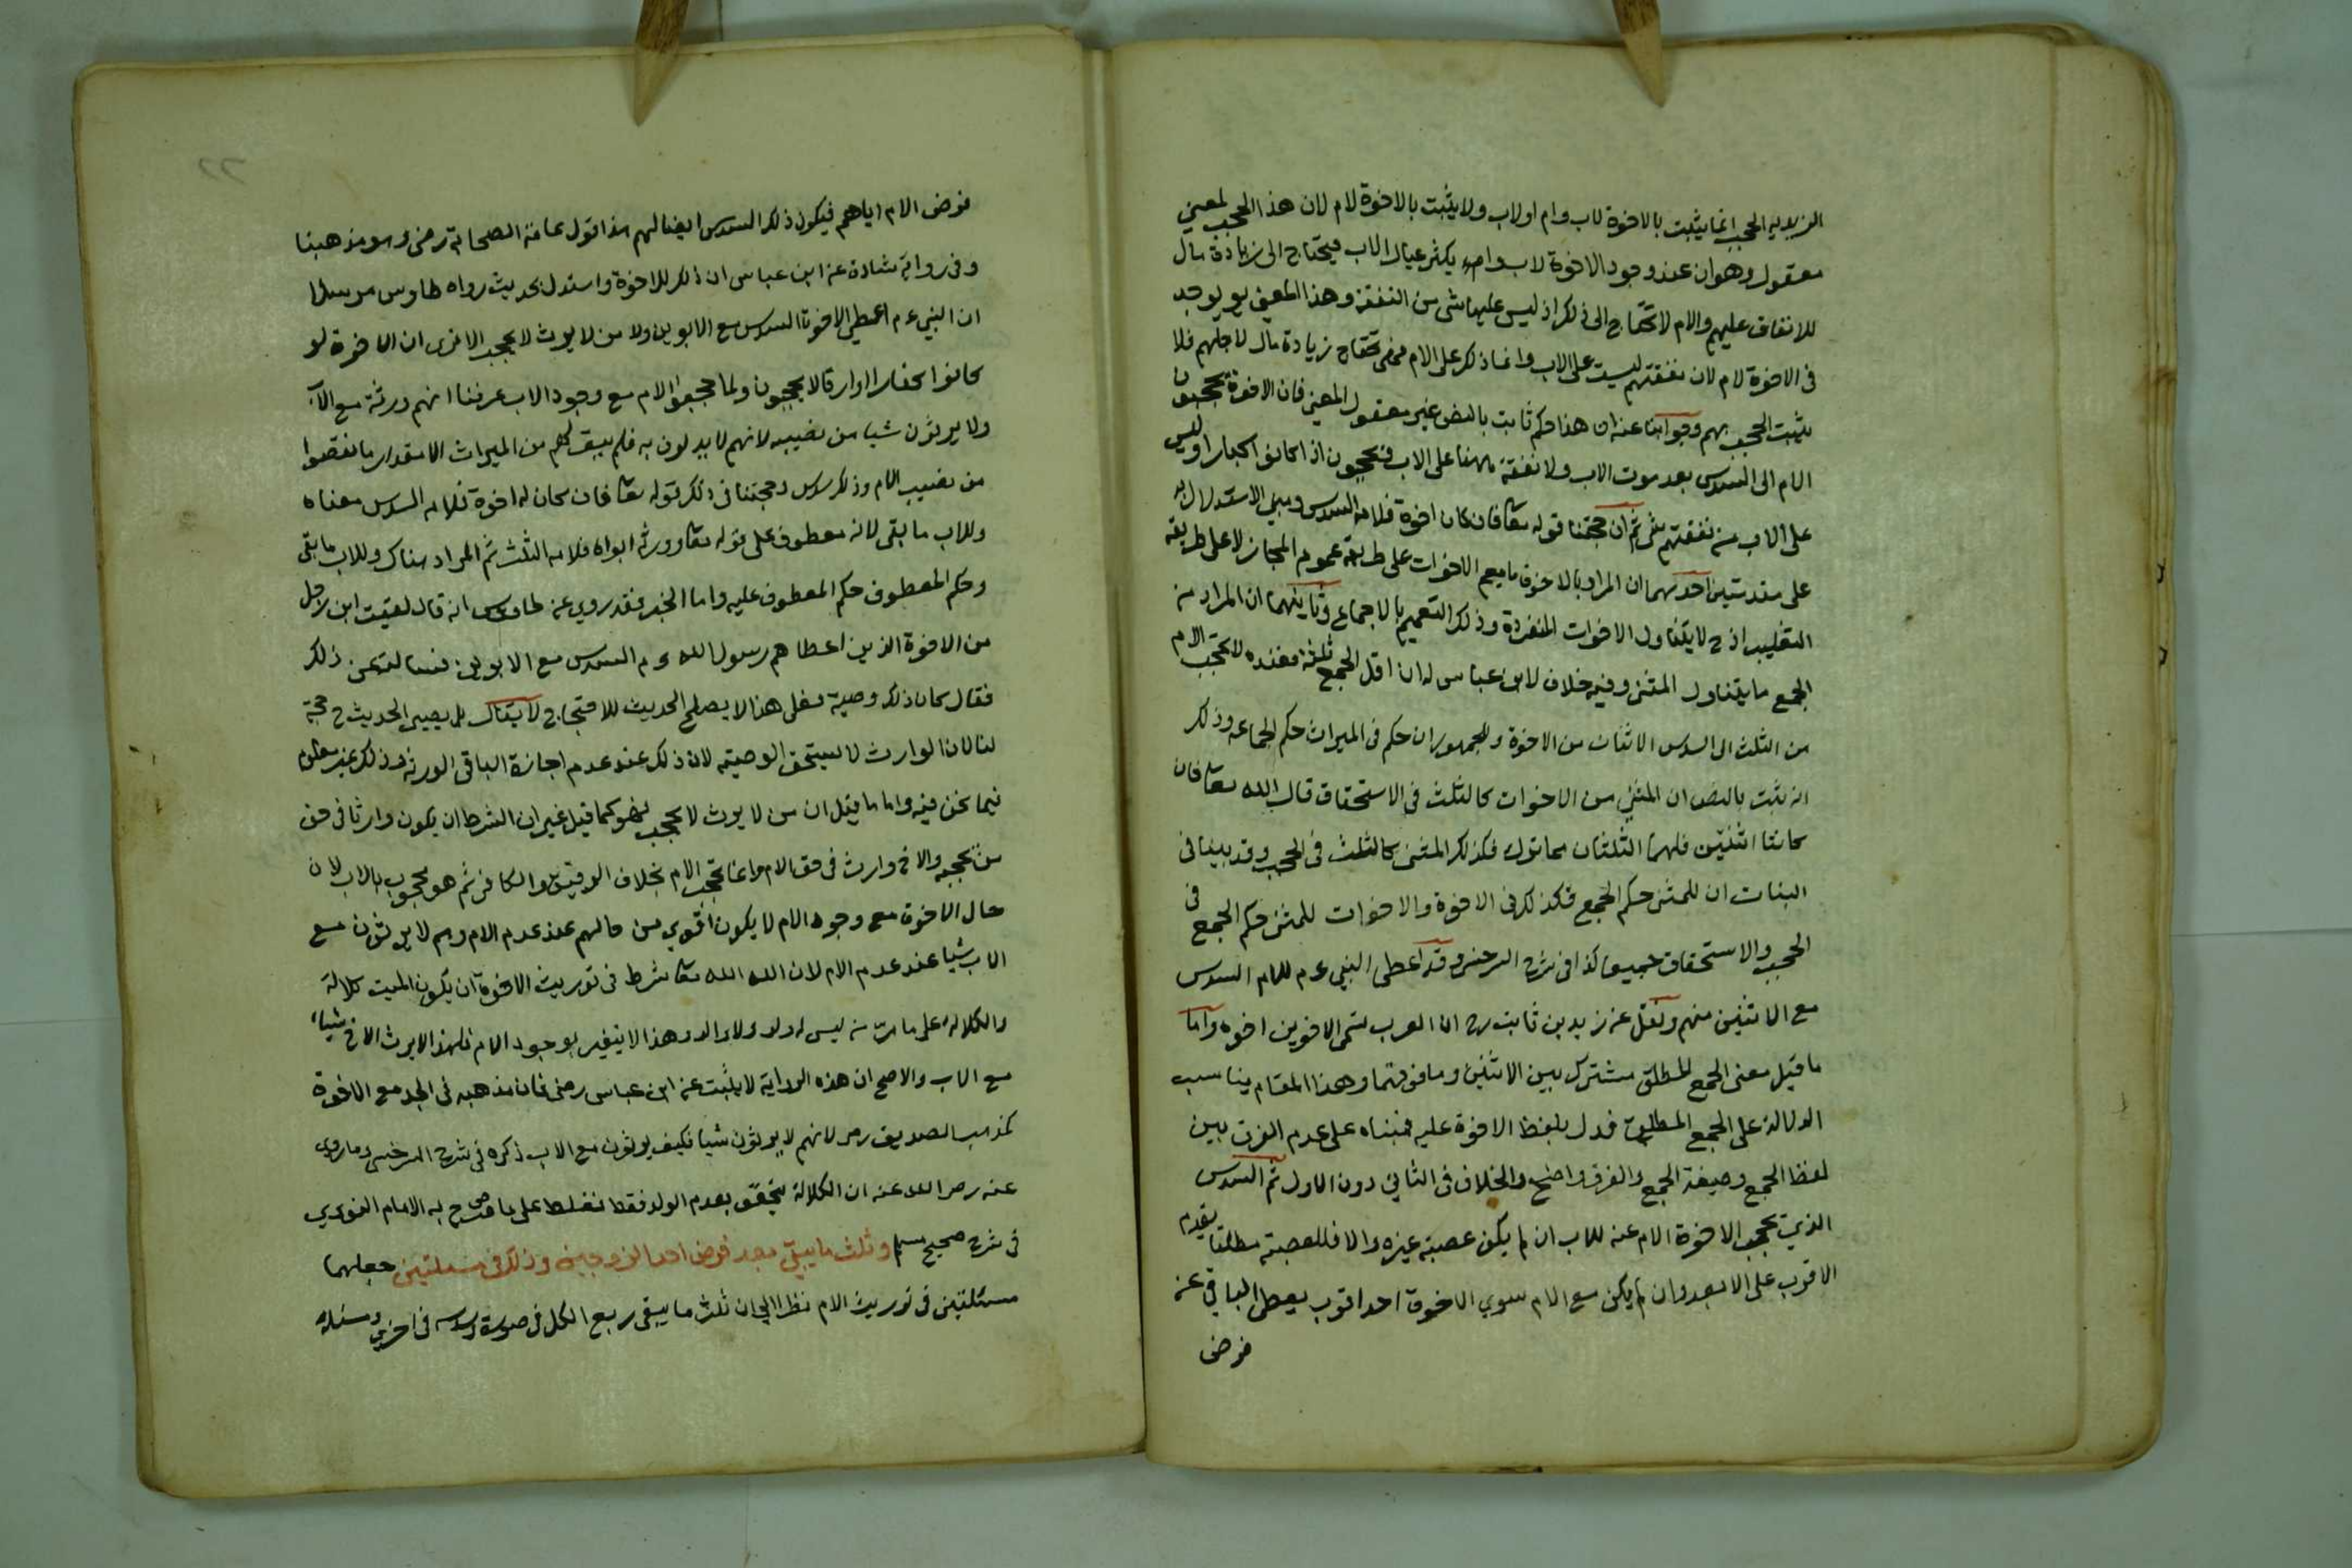 الزيديه الحجب انما يثبت بالاخوة لاب وام او لاب ولا يثبت بالاخوة لام لان هذا الحجب لمعني
معقول وهو ان عند وجود الاخوة لاب وام يكثر عيال الاب فيحتاج الى زيادة مال
للانفاق عليهم والام لا تحتاج الى ذلك اذ ليس عليها شى من النفقة وهذا المعنى يوجد
فى الاخوة لام لان نفقتهم ليست على الاب وانما ذلك على الام فهى تحتاج زيادة مال لاجلهم فلا
يثبت الحجب بهم وجوابنا عنه ان هذا حكم ثابت بالنص غير معقول المعنى فان الاخوة يحجبون
الام الى السدس بعد موت الاب ولا نفقة ههنا على الاب ويحجبون اذا كانوا كبارا وليس
على الاب من نفقتهم شى ثم ان حجتنا قوله تعا فان كان له اخوة فلامه السدس ومبنى الاستدلال به
على مقدمتين احديهما ان المراد بالاخوة ما يعم الاخوات على طريقة عموم المجاز لا على طريقة
التغليب اذ ح لا يتناول الاخوات المنفردة وذلك التعميم بالاجماع وثانيتهما ان المراد من
الجمع ما يتناول المثنى وفيه خلاف لابن عباس له ان اقل الجمع ثلثة فعنده لا يحجب الام
من الثلث الى السدس الاثنان من الاخوة وللجمهور ان حكم فى الميراث حكم الجماعه وذلك
انه يثبت بالنص ان المثنى من الاخوات كالثلث فى الاستحقاق قال الله تعا فان
كانتا اثنتين فلهما الثلثان مما ترك فكذلك المثنى كالثلث فى الحجب وقد بينا فى
البنات ان للمثنى حكم الجمع فكذلك فى الاخوة والاخوات للمثنى حكم الجمع فى
الحجب والاستحقاق جميعا كذا فى شرح السرخسى وقد اعطى النبي عم للام السدس
مع الاثنين منهم ونقل عن زيد بن ثابت رح ان العرب تسمى الاخوين اخوه واما
ما قيل معنى الجمع المطلق مشترك بين الاثنين وما فوقهما وهذا المقام يناسب
الدلالة على الجمع المطلق فدل بلفظ الاخوة عليه فمبناه على عدم الفرق بين
لفظ الجمع وصيغة الجمع والفرق واضح والخلاف فى الثاني دون الاول ثم السدس
الذي يحجب الاخوة الام عنه للاب ان لم يكن عصبة غيره والا فللعصبة مطلقا يقدم
الاقرب على الابعد وان لم يكن مع الام سوي الاخوة احد اقرب يعطى الباقى عن
فرض
٢٢
فرض الام اياهم فيكون ذلك السدس ايضا لهم هذا قول عامة الصحابة رضى وهو مذهبنا
وفى رواية شاذة عن ابن عباس ان ذلك للاخوة واستدل بحديث رواه طاوس مرسلا
ان النبي عم اعطى الاخوة السدس مع الابوين ولا من لا يرث لا يحجب الا ترى ان الاخوة لو
كانوا كفارا او ارقا لا يحجبون ولما حجبوا الام مع وجود الاب عرفنا انهم ورثة مع الاب
ولا يرثون شيا من نصيبه لانهم لا يدلون به فلم يبق لهم من الميراث الا مقدار ما نقصوا
من نصيب الام وذلك سدس وحجتنا فى ذلك قوله تعا فان كان له اخوة فلامه السدس معناه
وللاب ما بقى لانه معطوف على قوله تعا وورثه ابواه فلامه الثلث ثم المراد هناك وللاب ما بقى
وحكم المعطوف حكم المعطوف عليه واما الخبر فقد روي عن طاوس انه قال لقيت ابن رجل
من الاخوة الذين اعطاهم رسول الله عم السدس مع الابوين فسالته عن ذلك
فقال كان ذلك وصية فعلى هذا لا يصلح الحديث للاحتجاج لا يقال بل يصير الحديث ح حجة
لنا لان الوارث لا يستحق الوصية لان ذلك عند عدم اجازة الباقى الورثة وذلك غير معلوم
فيما نحن فيه واما ما قيل ان من لا يرث لا يحجب فهو كما قيل غير ان الشرط ان يكون وارثا فى حق
من يحجبه والاخ وارث فى حق الام وانما يحجب الام بخلاف الرقيق والكافر ثم هو محجوب بالاب لان
حال الاخوة مع وجود الام لا يكون اقوي من حالهم عند عدم الام وهم لا يرثون مع
الاب شيا عند عدم الام لان الله الله تعا شرط فى توريث الاخوة ان يكون الميت كلالة
والكلالة على ما مر من ليس له ولد ولا والد وهذا لا يتغير بوجود الام فلهذا لا يرث الاخ شيئا
مع الاب والاصح ان هذه الرواية لا يثبت عن ابن عباس رضى فان مذهبه فى الجد مع الاخوة
كمذهب الصديق رض لانهم لا يرثون شيا فكيف يرثون مع الاب ذكره فى شرح السرخسى وما روى
عنه رضى الله عنه ان الكلالة يتحقق بعدم الولد فقط فغلط على ما صرح به الامام النووي
فى شرح صحيح مسلم وثلث ما يبقى بعد فرض احد الزوجين وذلك فى مسئلتين جعلهما
مسئلتين فى توريث الام نظرا الى ان ثلث ما يبقى ربع الكل فى صورة وسدسه فى اخرى ومسئلة